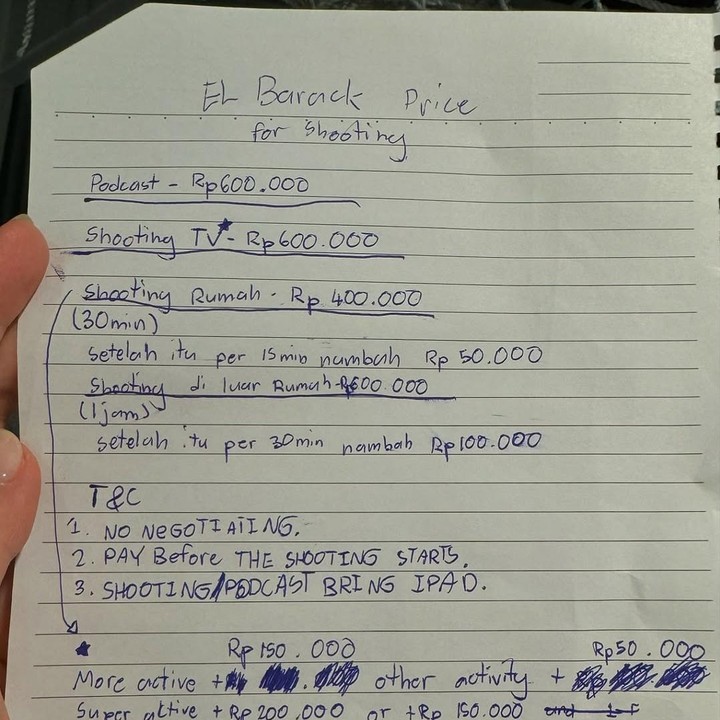 EL Barack Price
for Shooting
Podcast - Rp600.000
Shooting TV* - Rp600.000
Shooting Rumah - Rp 400.000
(30min)
setelah itu per 15min nambah Rp 50.000
Shooting di luar Rumah - Rp600.000
(1jam)
setelah itu per 30min nambah Rp100.000
T&C
1. NO NEGOTIATING.
2. PAY Before THE SHOOTING STARTS.
3. SHOOTING/PODCAST BRING IPAD.
* Rp 150.000 Rp 50.000
More active + other activity +
Super aktive + Rp 200.000 or + Rp 150.000